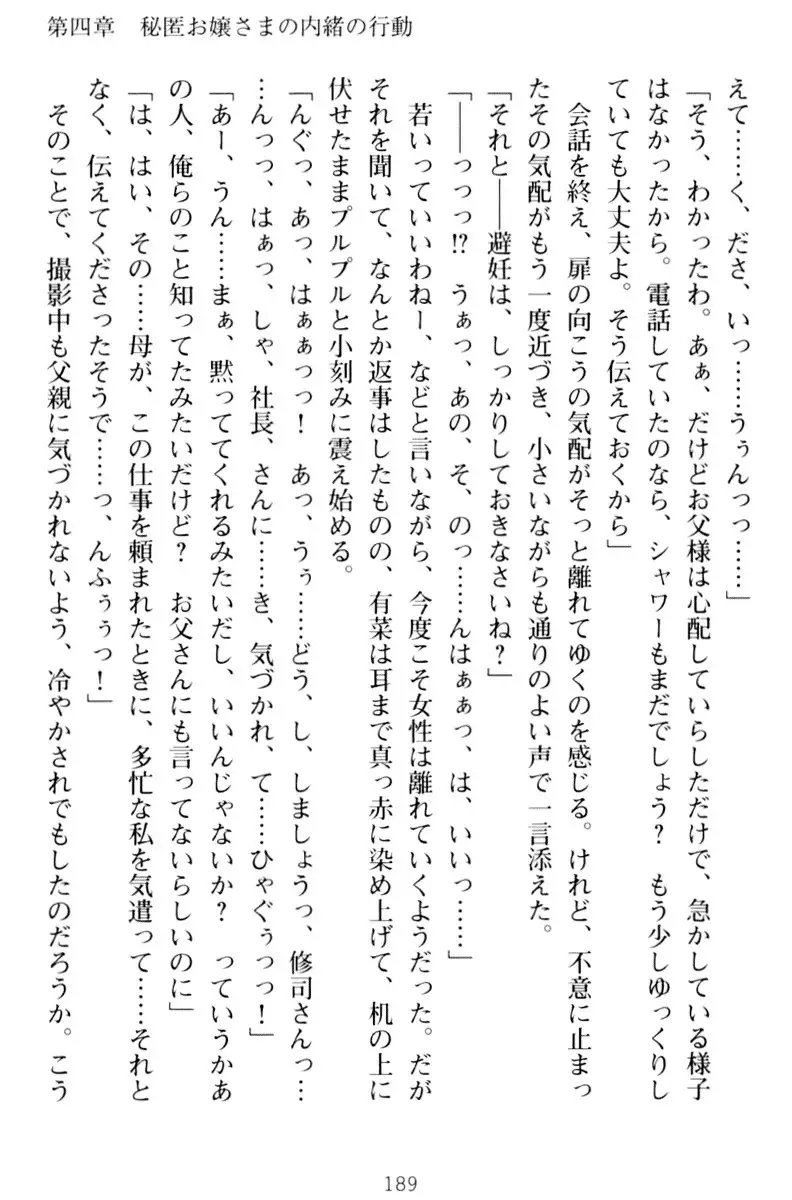 第四章　秘匿お嬢さまの内緒の行動
えて……く、ださ、いっ……うぅんっっ……」
「そう、わかったわ。あぁ、だけどお父様は心配していらしただけで、急かしている様子
はなかったから。電話していたのなら、シャワーもまだでしょう？　もう少しゆっくりし
ていても大丈夫よ。そう伝えておくから」
会話を終え、扉の向こうの気配がそっと離れてゆくのを感じる。けれど、不意に止まっ
たその気配がもう一度近づき、小さいながらも通りのよい声で一言添えた。
「それと――避妊は、しっかりしておきなさいね？」
「――っっっ!?　うぁっ、あの、そ、のっ……んはぁぁっ、は、いいっ……」
若いっていいわねー、などと言いながら、今度こそ女性は離れていくようだった。だが
それを聞いて、なんとか返事はしたものの、有菜は耳まで真っ赤に染め上げて、机の上に
伏せたままプルプルと小刻みに震え始める。
「んぐっ、あっ、はぁぁっっ！　あっ、うぅ……どう、し、しましょうっ、修司さんっ…
…んっっ、はぁっ、しゃ、社長、さんに……き、気づかれ、て……ひゃぐぅっっ！」
「あー、うん……まぁ、黙っててくれるみたいだし、いいんじゃないか？　っていうかあ
の人、俺らのこと知ってたみたいだけど？　お父さんにも言ってないらしいのに」
「は、はい、その……母が、この仕事を頼まれたときに、多忙な私を気遣って……それと
なく、伝えてくださったそうで……っ、んふぅぅっ！」
そのことで、撮影中も父親に気づかれないよう、冷やかされでもしたのだろうか。こう
189